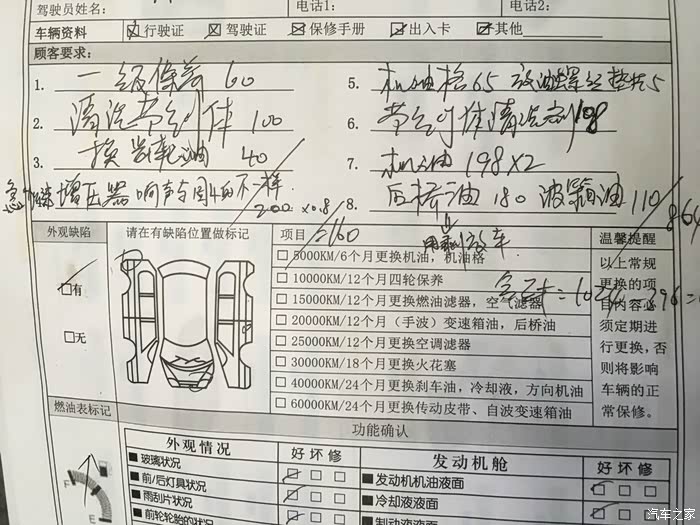 驾驶员姓名: 电话1: 电话2:
车辆资料 行驶证 驾驶证 保修手册 出入卡 其他
顾客要求:
1. 一级保养 60
5. 机油格 65 放油螺丝垫片 5
2. 清洗节气门体 100
6. 节气门体清洗剂 198
3. 换齿轮油 40
7. 机油 198×2
增压器响声与同4的不一样
8. 后桥油 180 波箱油 110
200 × 0.8
=160
864
外观缺陷
请在有缺陷位置做标记
项目
温馨提醒
有
无
5000KM/6个月更换机油，机油格
10000KM/12个月四轮保养
15000KM/12个月更换燃油滤器，空气滤器
20000KM/12个月（手波）变速箱油，后桥油
25000KM/12个月更换空调滤器
30000KM/18个月更换火花塞
40000KM/24个月更换刹车油，冷却液，方向机油
60000KM/24个月更换传动皮带、自波变速箱油
以上常规
更换的项
目内容必
须定期进
行更换，否
则将影响
车辆的正
常保修。
燃油表标记
F
E
功能确认
外观情况 好 坏 修
玻璃状况
前/后灯具状况
雨刮片状况
前轮轮胎的状况
发动机舱 好 坏 修
发动机机油液面
冷却液液面
制动液液面
汽车之家